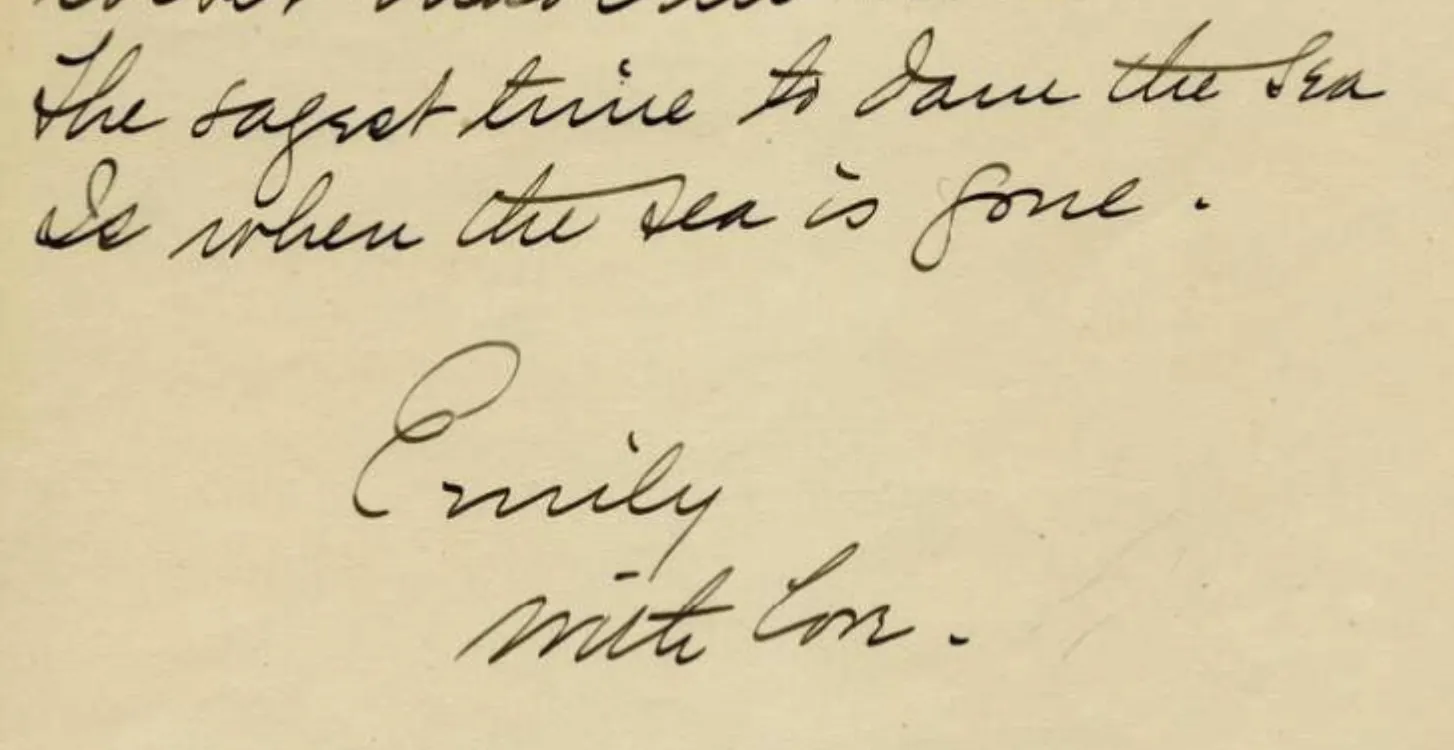 The sagest time to dam the sea
Is when the sea is gone.
Emily
with love.